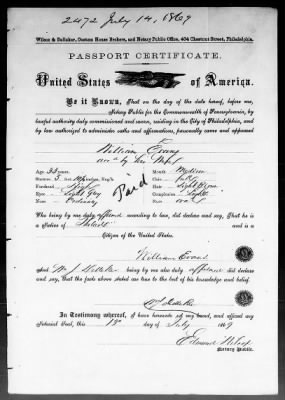 2472 July 14, 1869
Wilson & Hallaker, Custom House Brokers, and Notary Public Office, 404 Chestnut Street, Philadelphia.
PASSPORT CERTIFICATE.
United States of America.
Be it Known, That on the day of the date hereof, before me,
Notary Public for the Commonwealth of Pennsylvania, by
lawful authority duly commissioned and sworn, residing in the City of Philadelphia, and
by law authorized to administer oaths and affirmations, personally came and appeared
William Evans
Age, years. Mouth, Medium
Stature, 5 feet Eng'h
Forehead, High Hair,
Eyes, Light Gray Complexion, Light
Nose, Ordinary Face, oval
Paid
Who being by me duly affirmed according to law, did declare and say, That he is
a Native of
Citizen of the United States.
William Evans
And Wm J. being by me also duly did declare
and say, That the facts above stated are true to the best of his knowledge and belief.
In Testimony whereof, I have hereunto set my hand, and affixed my
Notarial Seal, this day of July 1869
Edmund Wilcox
Notary Public.